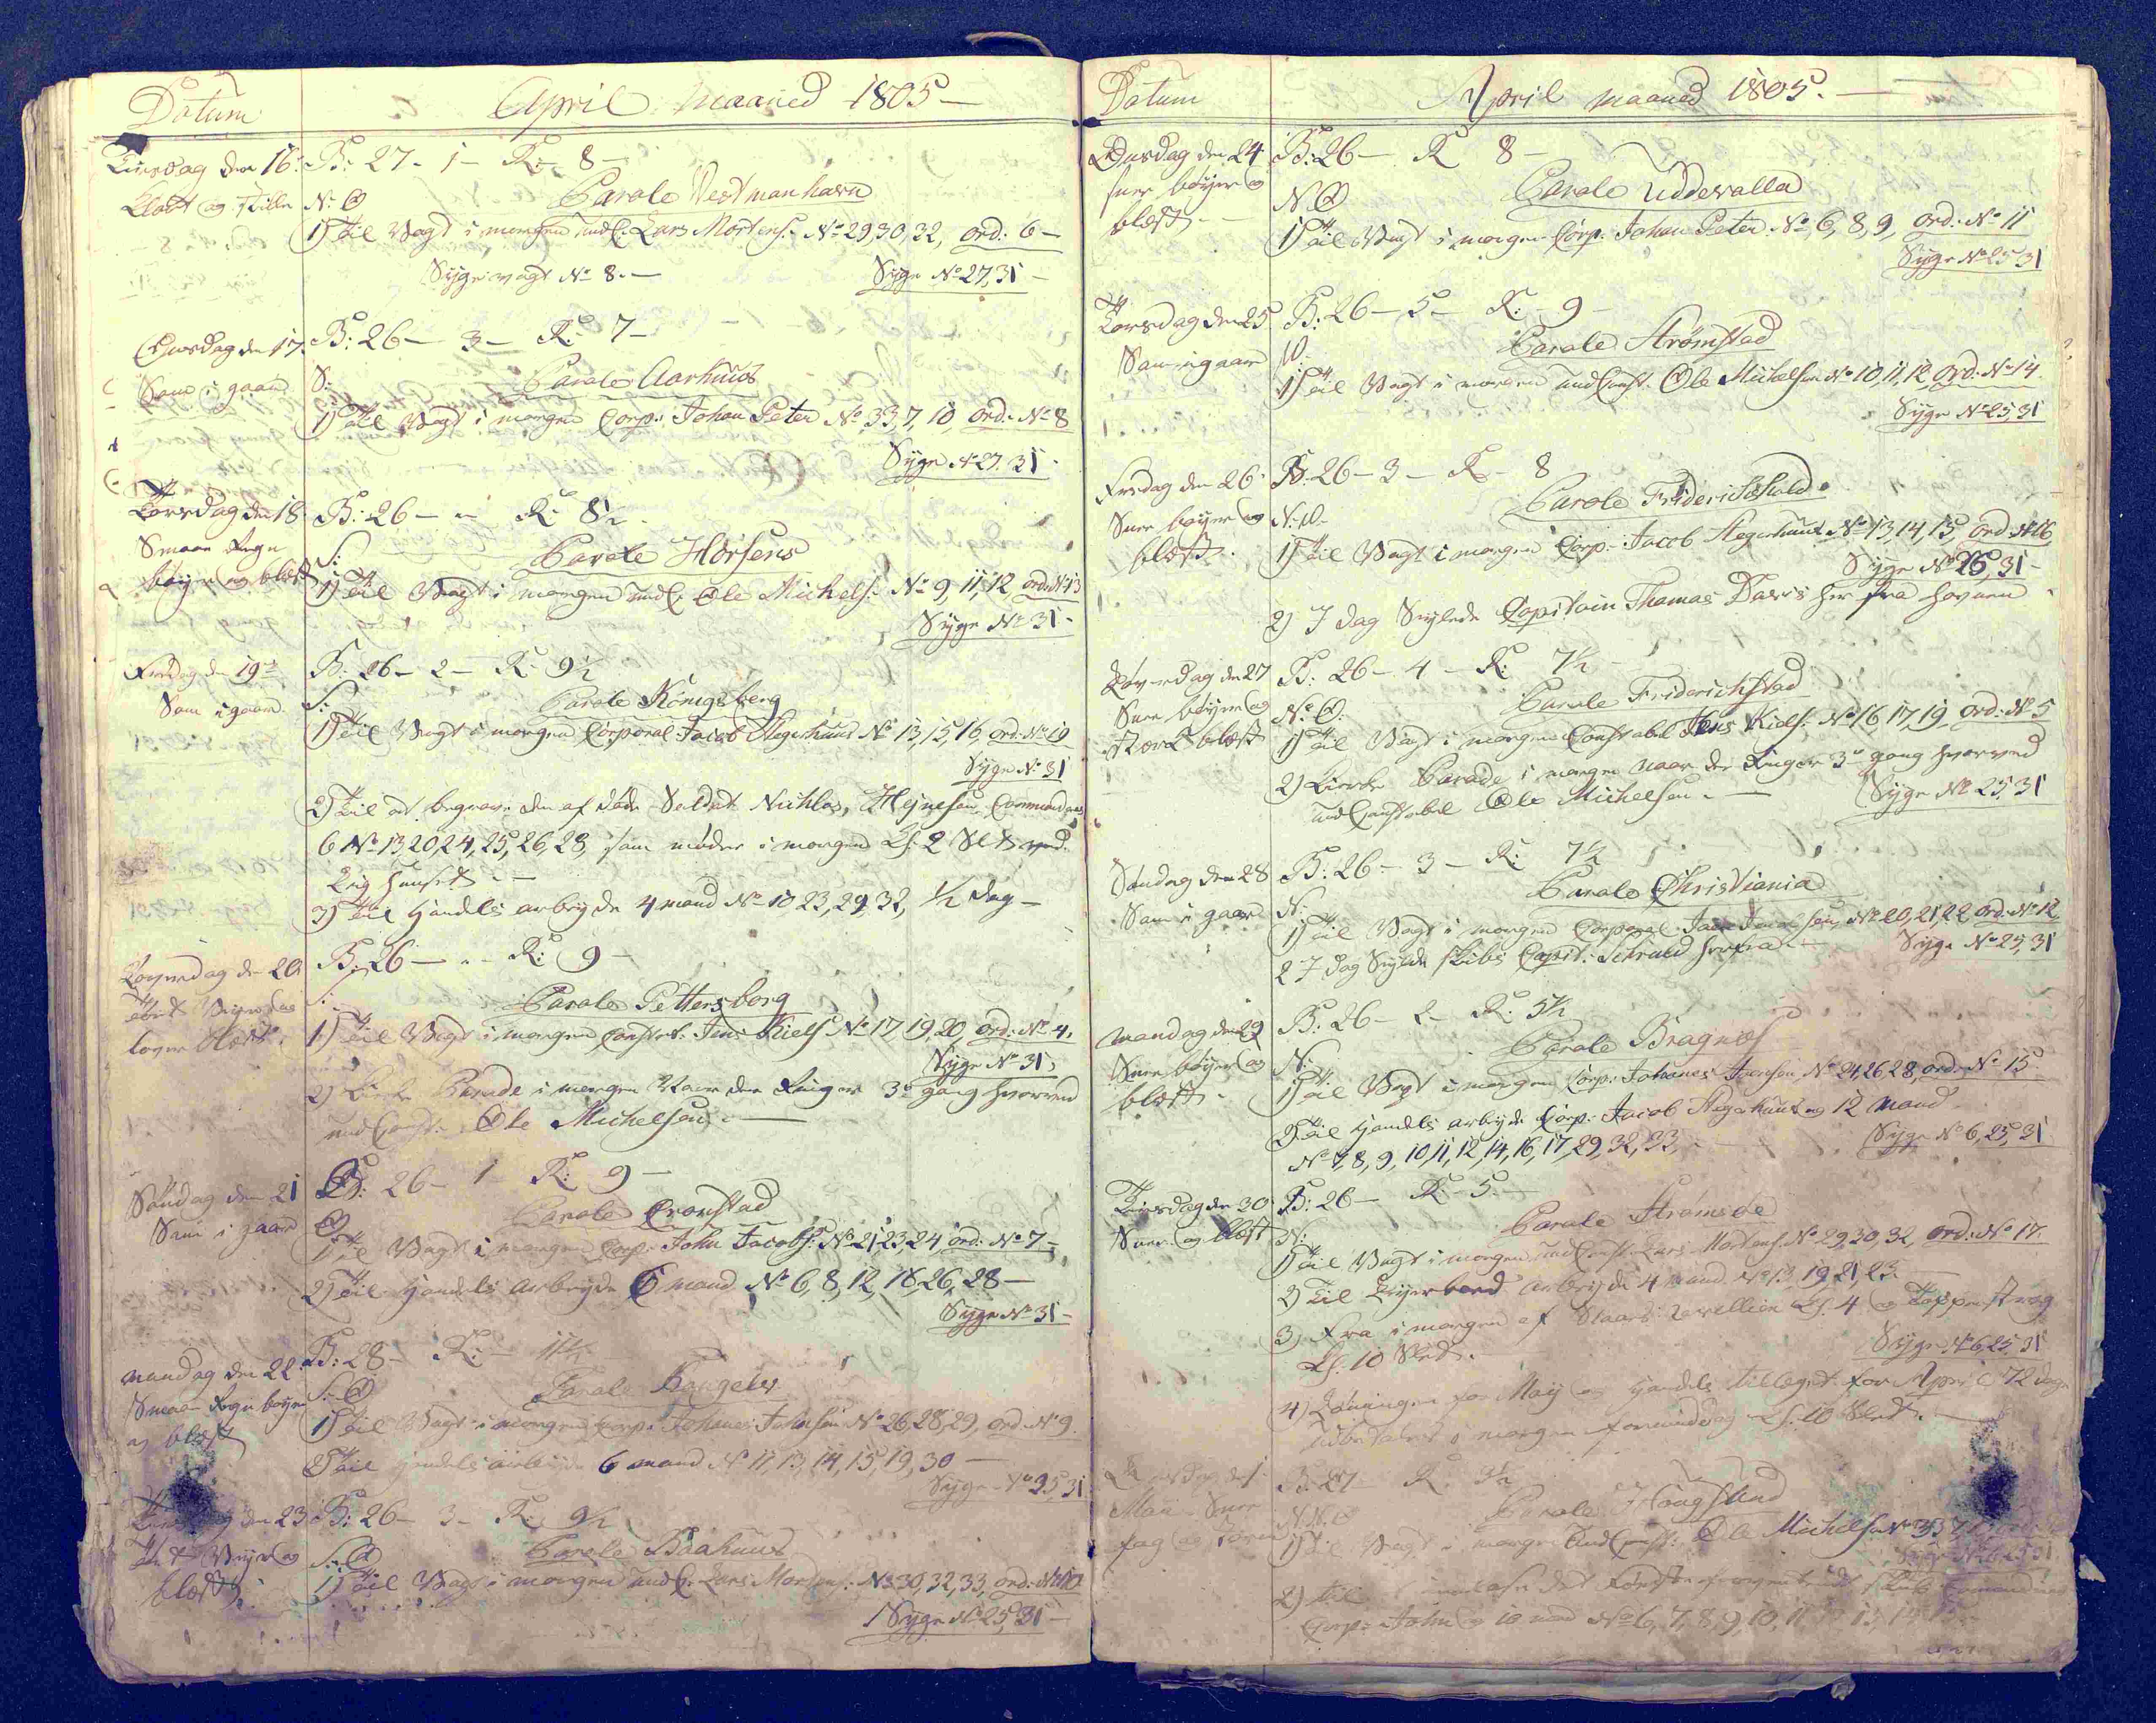 Datum
April Maaned 1805 —
Tiirsdag den 16:
Klart og stille
B: 27 - 1 - R: 8 -
N: O
Parole Vestmanhavn
1) Til Vagt i morgen undC: Lars Mortens: No 29, 30, 32, ord: 6 —
Sygevagt No 8. —
Syge No 27, 31 —
Onsdag den 17
Som i gaar
B: 26 — 3 — R: 7 —
S:
Parole Aarhuus
1) Til Vagt i morgen Corp: Johan Peter No 33, 7, 10, ord: No 8
Syge No 27. 31 -
Torsdag den 18
Smaae Regn
bøyer og blæst
B: 26 — " R: 8½
S:
Parole Horsens
1) Til Vagt i morgen undC: Ole Michels: No 9, 11, 12 ord: No 13
Syge No 31 -
Fredag den 19de
Som i gaar
B: 26 — 2 — R: 9½
S:
Parole Königsberg
1) Til Vagt i morgen Corporal Jacob Hegerhuus No 13, 15, 16, ord: No 19
Syge No 31
2) Til at begrave den af døde Soldat Nichlas, Hejnesen Commanderes
6 No 13, 20, 24, 25, 26, 28, som møder i morgen Kl. 2 Slet ved
Liig Huuset. —
3) Til Handels arbeyde 4 mand No 10 23, 29 32, ½ dag —
Løverdag den 20
B: 26 — " R: 9 —
S:
Parole Pettersborg
1) Til Vagt i morgen Constb: Jens Kiels: No 17, 19, 20, ord: No 4,
Syge No 31,
2) Kirke Parade i morgen Naar der Ringes 3de gang hvorved
undConst: Ole Michelsen. —
Søndag den 21
Som i gaar
B: 26 — 1 R: 9 —
O
Parole Cronstad
1) Til Vagt i morgen Corp: John Jacobs: No 21 23, 24, ord: No 7 —
2) Til Handels arbeyde 6 mand No 6, 8, 12, 16, 26, 28 —
Syge No 31 —
Mandag den 22
Smaae Regn bøyer
og blæst
B: 28 — R: — 11½
S: O
1) Til Vagt i morgen Corp: Johanes Johnsen No 26, 28, 29, ord: No 9
2) Til Handels arbeyde 6 mand No 11, 13, 14, 15, 19, 30 —
Syge No 25 31
den 23
og
blæst.
B: 26 — 3 — R: 9½
S: O
Parole Baahuus
1) Til Vagt i morgen undC: Lars Mortens: No 30, 32, 33, ord: No 10
Syge No 25, 31 —
Datum
April maaned 1805. —
Onsdag den 24
Snee bøyer og
blæst. —
B: 26 — R 8 —
N. O
Parole Uddevalla
1) Til Vagt i morgen Corp: Johan Peter No 6, 8, 9, ord: No 11
Syge No 25 31
Torsdag den 25
Som igaar
B: 26 — 5 — R: 9 —
W:
Parole Strømstad
1) Til Vagt i morgen undConst. Ole Michelsen No 10, 11, 12 ord: No 14
Syge No 25, 31
Fredag den 26
Snee bøyer og
blæst.
B: 26 — 3 — R — 8
N: W-
Parole Friderichshald.
1) Til Vagt i morgen Corp: Jacob Hegerhuus No 13, 14, 15, ord: No 16
Syge No 25, 31 —
2) I Dag Seylede Capitain Thomas Davis her fra Havnen
Løverdag den 27
Snee bøyer og
stærk blæst
B: 26 — 4 — R: 7½
N: O:
Parole Friderichstad
1) Til Vagt i morgen Constabel Jens Kiels: No 16, 17, 19 ord: No 5
2) Kirke Parade i morgen naar der Ringes 3de gang hvorved
undConstabel Ole Michelsen. —
Syge No 25, 31
Søndag den 28
Som i gaar
B: 26 — 3 — R: 7½
N:
Parole Christiania
1) Til Vagt i morgen Corporal No 20, 21, 22 ord: No 12,
2 I Dag Seylde skibs Capit: Schrued herfra —
Syge No 25, 31
Mandag den 29
Snee bøyer og
blæst -
B: 26 — 2 — R: 5½
N:
Parole Bragnæs
1) Til Vagt i morgen Corp: Johanes Joensen No 24, 26 28, ord: No 15
2) Til Handels arbeyde Corp: Jacob Hegerhuus og 12 Mand
No 7, 8, 9, 10, 11, 12, 14, 16, 17, 29, 32, 33,
Syge No 6, 25, 31
Tiirsdag den 30
Snee og blæst
B: 26 — R: — 5 —
N:
Parole Strømsøe
1) Til Vagt i morgen undConst: Lars Mortens: No 29, 30, 32, ord: No 17.
2) Til arbeyde 4 mand No 13, 19, 21, 23. —
3) Fra i morgen af Slaaes Revellien Kl. 4 og Tappenstræg
Kl. 10 Slet. —
Syge No 6, 25, 31
4) Lønningen for Maij og Handels tillæget for April 72 dage
udbetales i morgen formiddag Kl. 10 Slet.
Maii Snee
fog og
B: 27 R: 3½
1) Til Vagt i morgen UndConst: Ole Michelsen No 33, 7
2) til
Corp: John og 10 mand No 6, 7, 8, 9, 10, 11